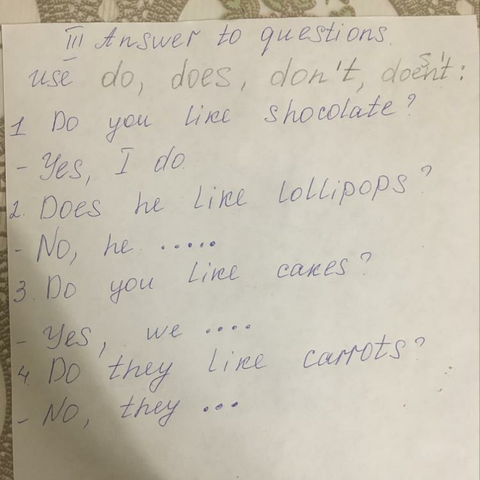 III Answer to questions.
use do, does, don't, doesn't:
1 Do you like shocolate?
- Yes, I do.
2. Does he like lollipops?
- No, he .....
3. Do you like cakes?
- Yes, we ....
4. Do they like carrots?
- No, they ...